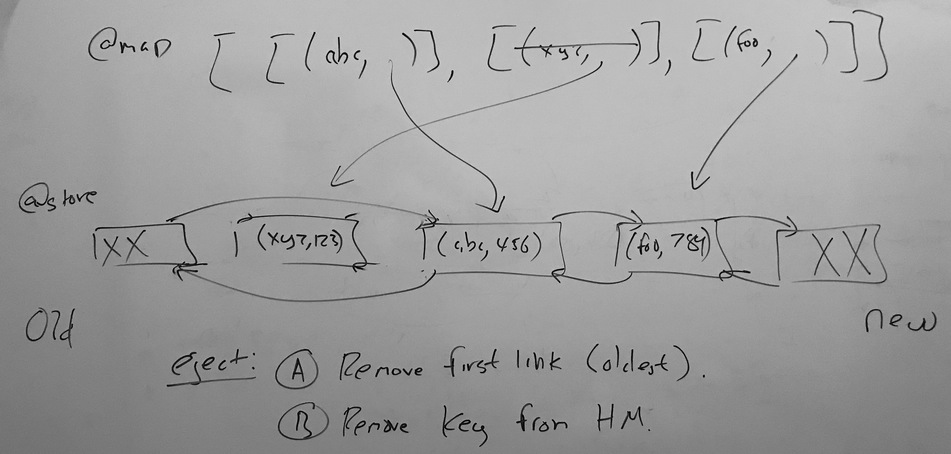 @map [ [(abc, )], [(xyz, )], [(foo, )]]
@store
XX (xyz,123) (abc,456) (foo,789) XX
Old new
eject: A Remove first link (oldest).
B Remove key from HM.